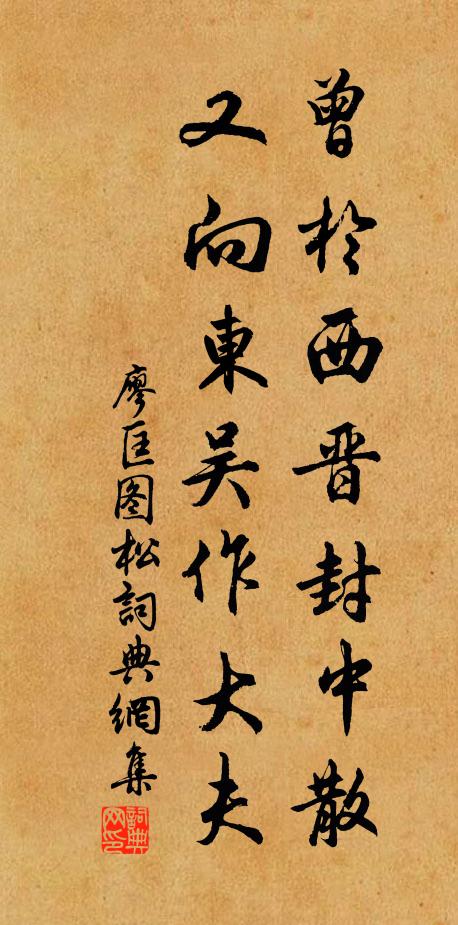 曾於西晋封中散
又向東吴作大夫
廖匡图松詞典網集
詞典网印